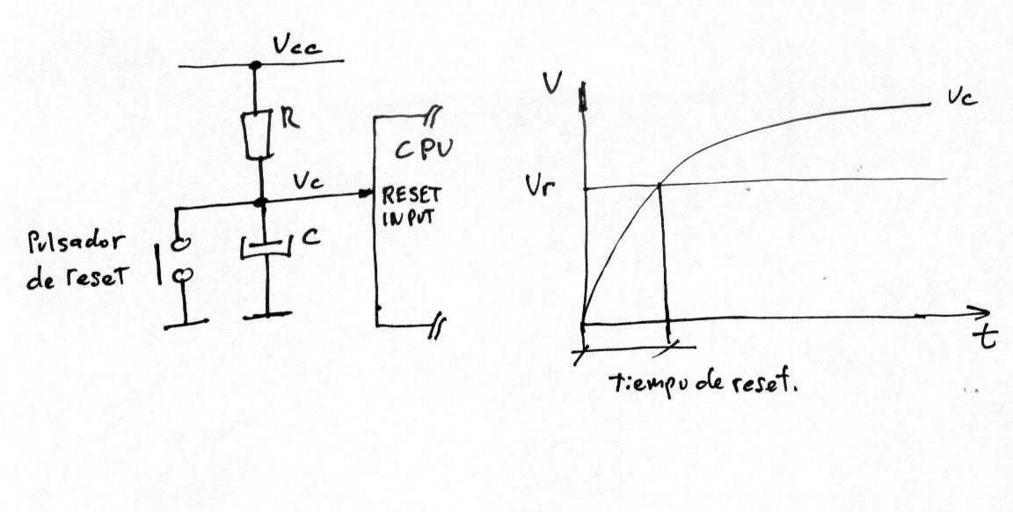 Vcc
R
CPU
Vc
RESET
INPUT
Pulsador
de reset
C
V
Vc
Vr
t
tiempo de reset.